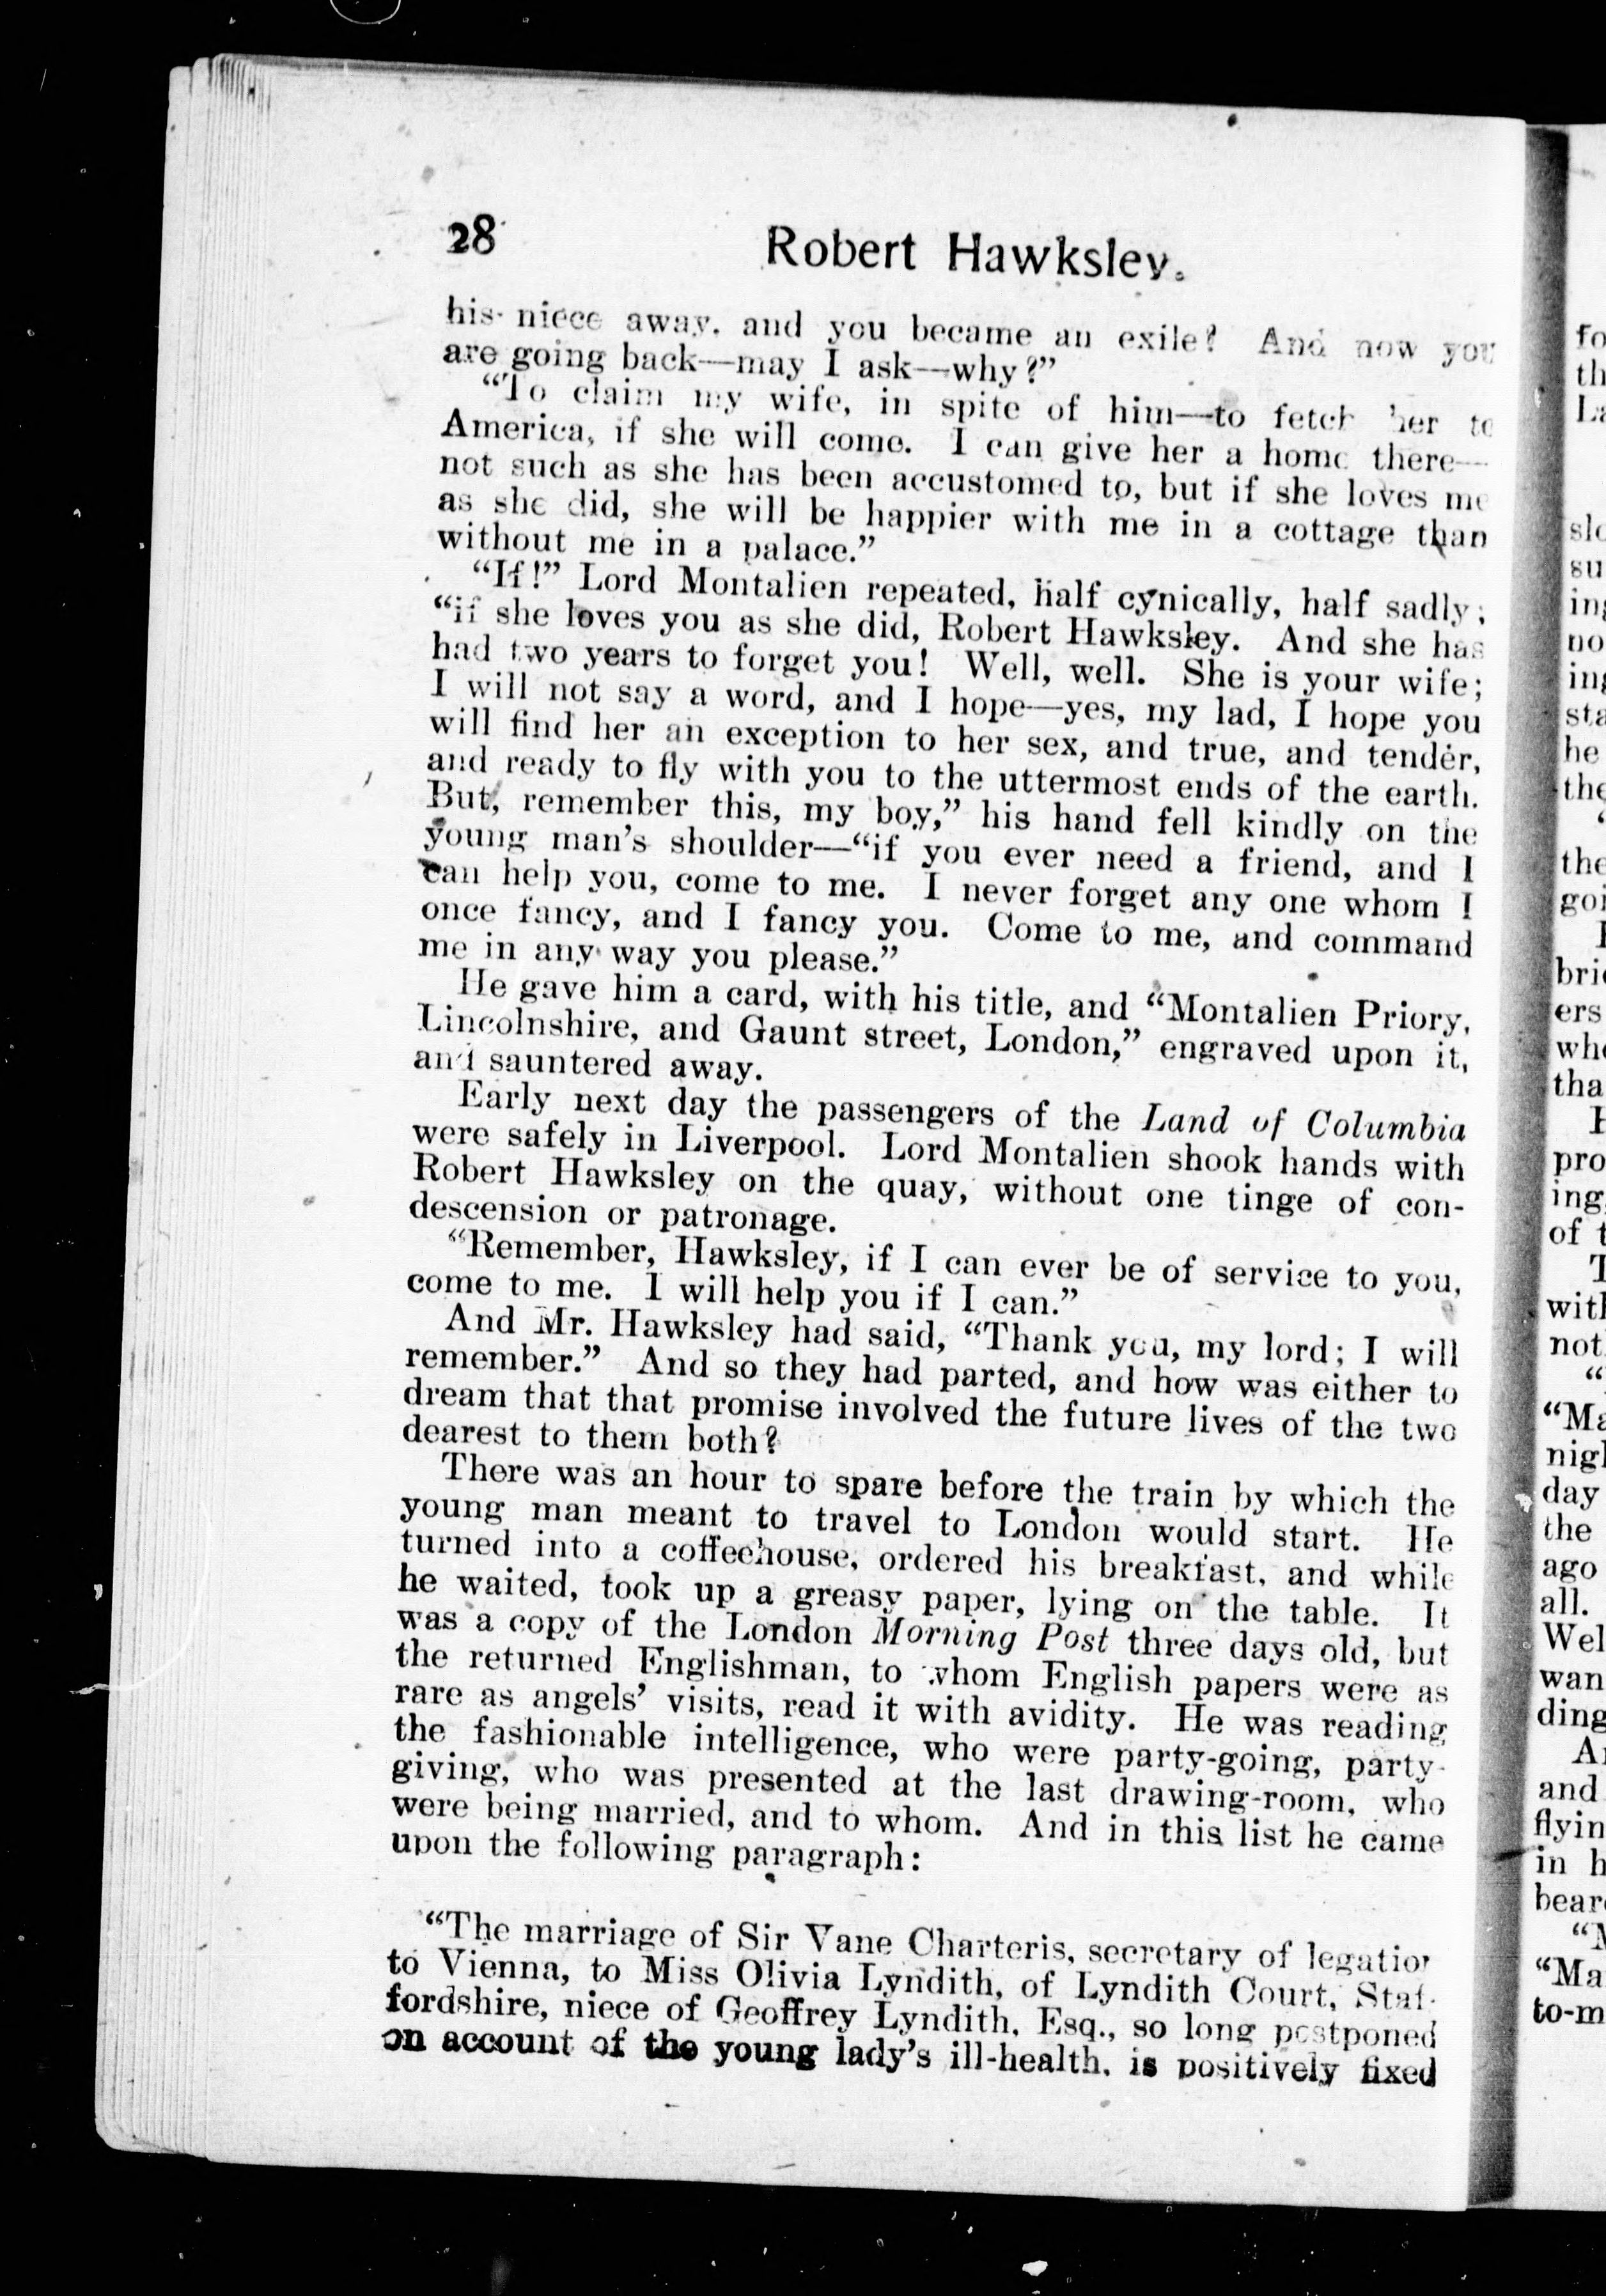 28
Robert Hawksley.
his niece away, and you became an exile? And now you
are going back—may I ask—why?”
“To claim my wife, in spite of him—to fetch her to
America, if she will come. I can give her a home there—
not such as she has been accustomed to, but if she loves me
as she did, she will be happier with me in a cottage than
without me in a palace.”
“If!” Lord Montalien repeated, half cynically, half sadly;
“if she loves you as she did, Robert Hawksley. And she has
had two years to forget you! Well, well. She is your wife;
I will not say a word, and I hope—yes, my lad, I hope you
will find her an exception to her sex, and true, and tender,
and ready to fly with you to the uttermost ends of the earth.
But, remember this, my boy,” his hand fell kindly on the
young man’s shoulder—“if you ever need a friend, and I
can help you, come to me. I never forget any one whom I
once fancy, and I fancy you. Come to me, and command
me in any way you please.”
He gave him a card, with his title, and “Montalien Priory,
Lincolnshire, and Gaunt street, London,” engraved upon it,
and sauntered away.
Early next day the passengers of the Land of Columbia
were safely in Liverpool. Lord Montalien shook hands with
Robert Hawksley on the quay, without one tinge of con-
descension or patronage.
“Remember, Hawksley, if I can ever be of service to you,
come to me. I will help you if I can.”
And Mr. Hawksley had said, “Thank you, my lord; I will
remember.” And so they had parted, and how was either to
dream that that promise involved the future lives of the two
dearest to them both?
There was an hour to spare before the train by which the
young man meant to travel to London would start. He
turned into a coffeehouse, ordered his breakfast, and while
he waited, took up a greasy paper, lying on the table. It
was a copy of the London Morning Post three days old, but
the returned Englishman, to whom English papers were as
rare as angels’ visits, read it with avidity. He was reading
the fashionable intelligence, who were party-going, party-
giving, who was presented at the last drawing-room, who
were being married, and to whom. And in this list he came
upon the following paragraph:
“The marriage of Sir Vane Charteris, secretary of legation
to Vienna, to Miss Olivia Lyndith, of Lyndith Court, Staf-
fordshire, niece of Geoffrey Lyndith, Esq., so long postponed
on account of the young lady’s ill-health, is positively fixed